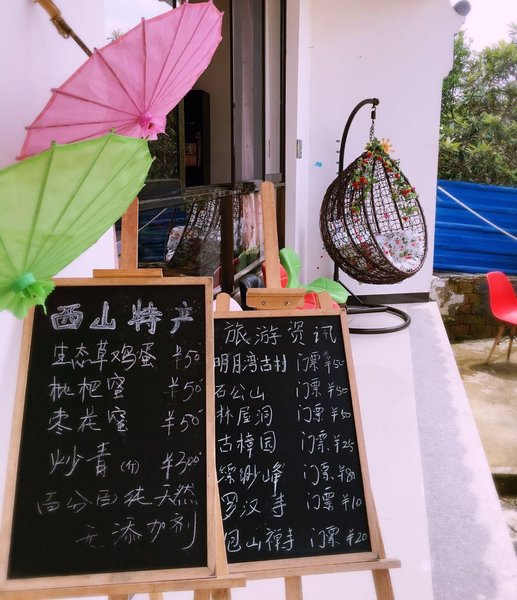 西山特产
生态草鸡蛋 ¥50
枇杷蜜 ¥50
枣花蜜 ¥50
炒青(斤) ¥300
百分百纯天然
无添加剂
旅游资讯
明月湾古村 门票¥50
石公山 门票¥50
林屋洞 门票¥50
古樟园 门票¥25
缥缈峰 门票¥80
罗汉寺 门票¥10
包山禅寺 门票¥20